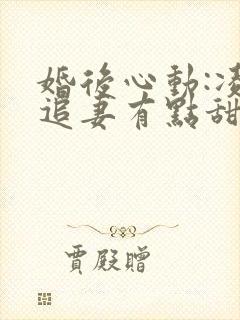 婚後心動:凌
追妻有點甜
賈殿贈